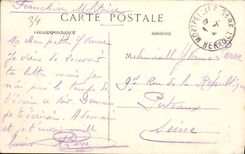 Franchise Militaire
34
CARTE POSTALE
CORRESPONDANCE
MONTPELLIER GARE
HERAULT
Ma chère petite Yvonne
Je viens de recevoir
ta lettre mais je n'ai
pas le temps de
t'écrire ce soir Demain
je t'écrirai. A demain
et
baisers
Mademoiselle Yvonne
97 Rue de la République
Puteaux
Seine